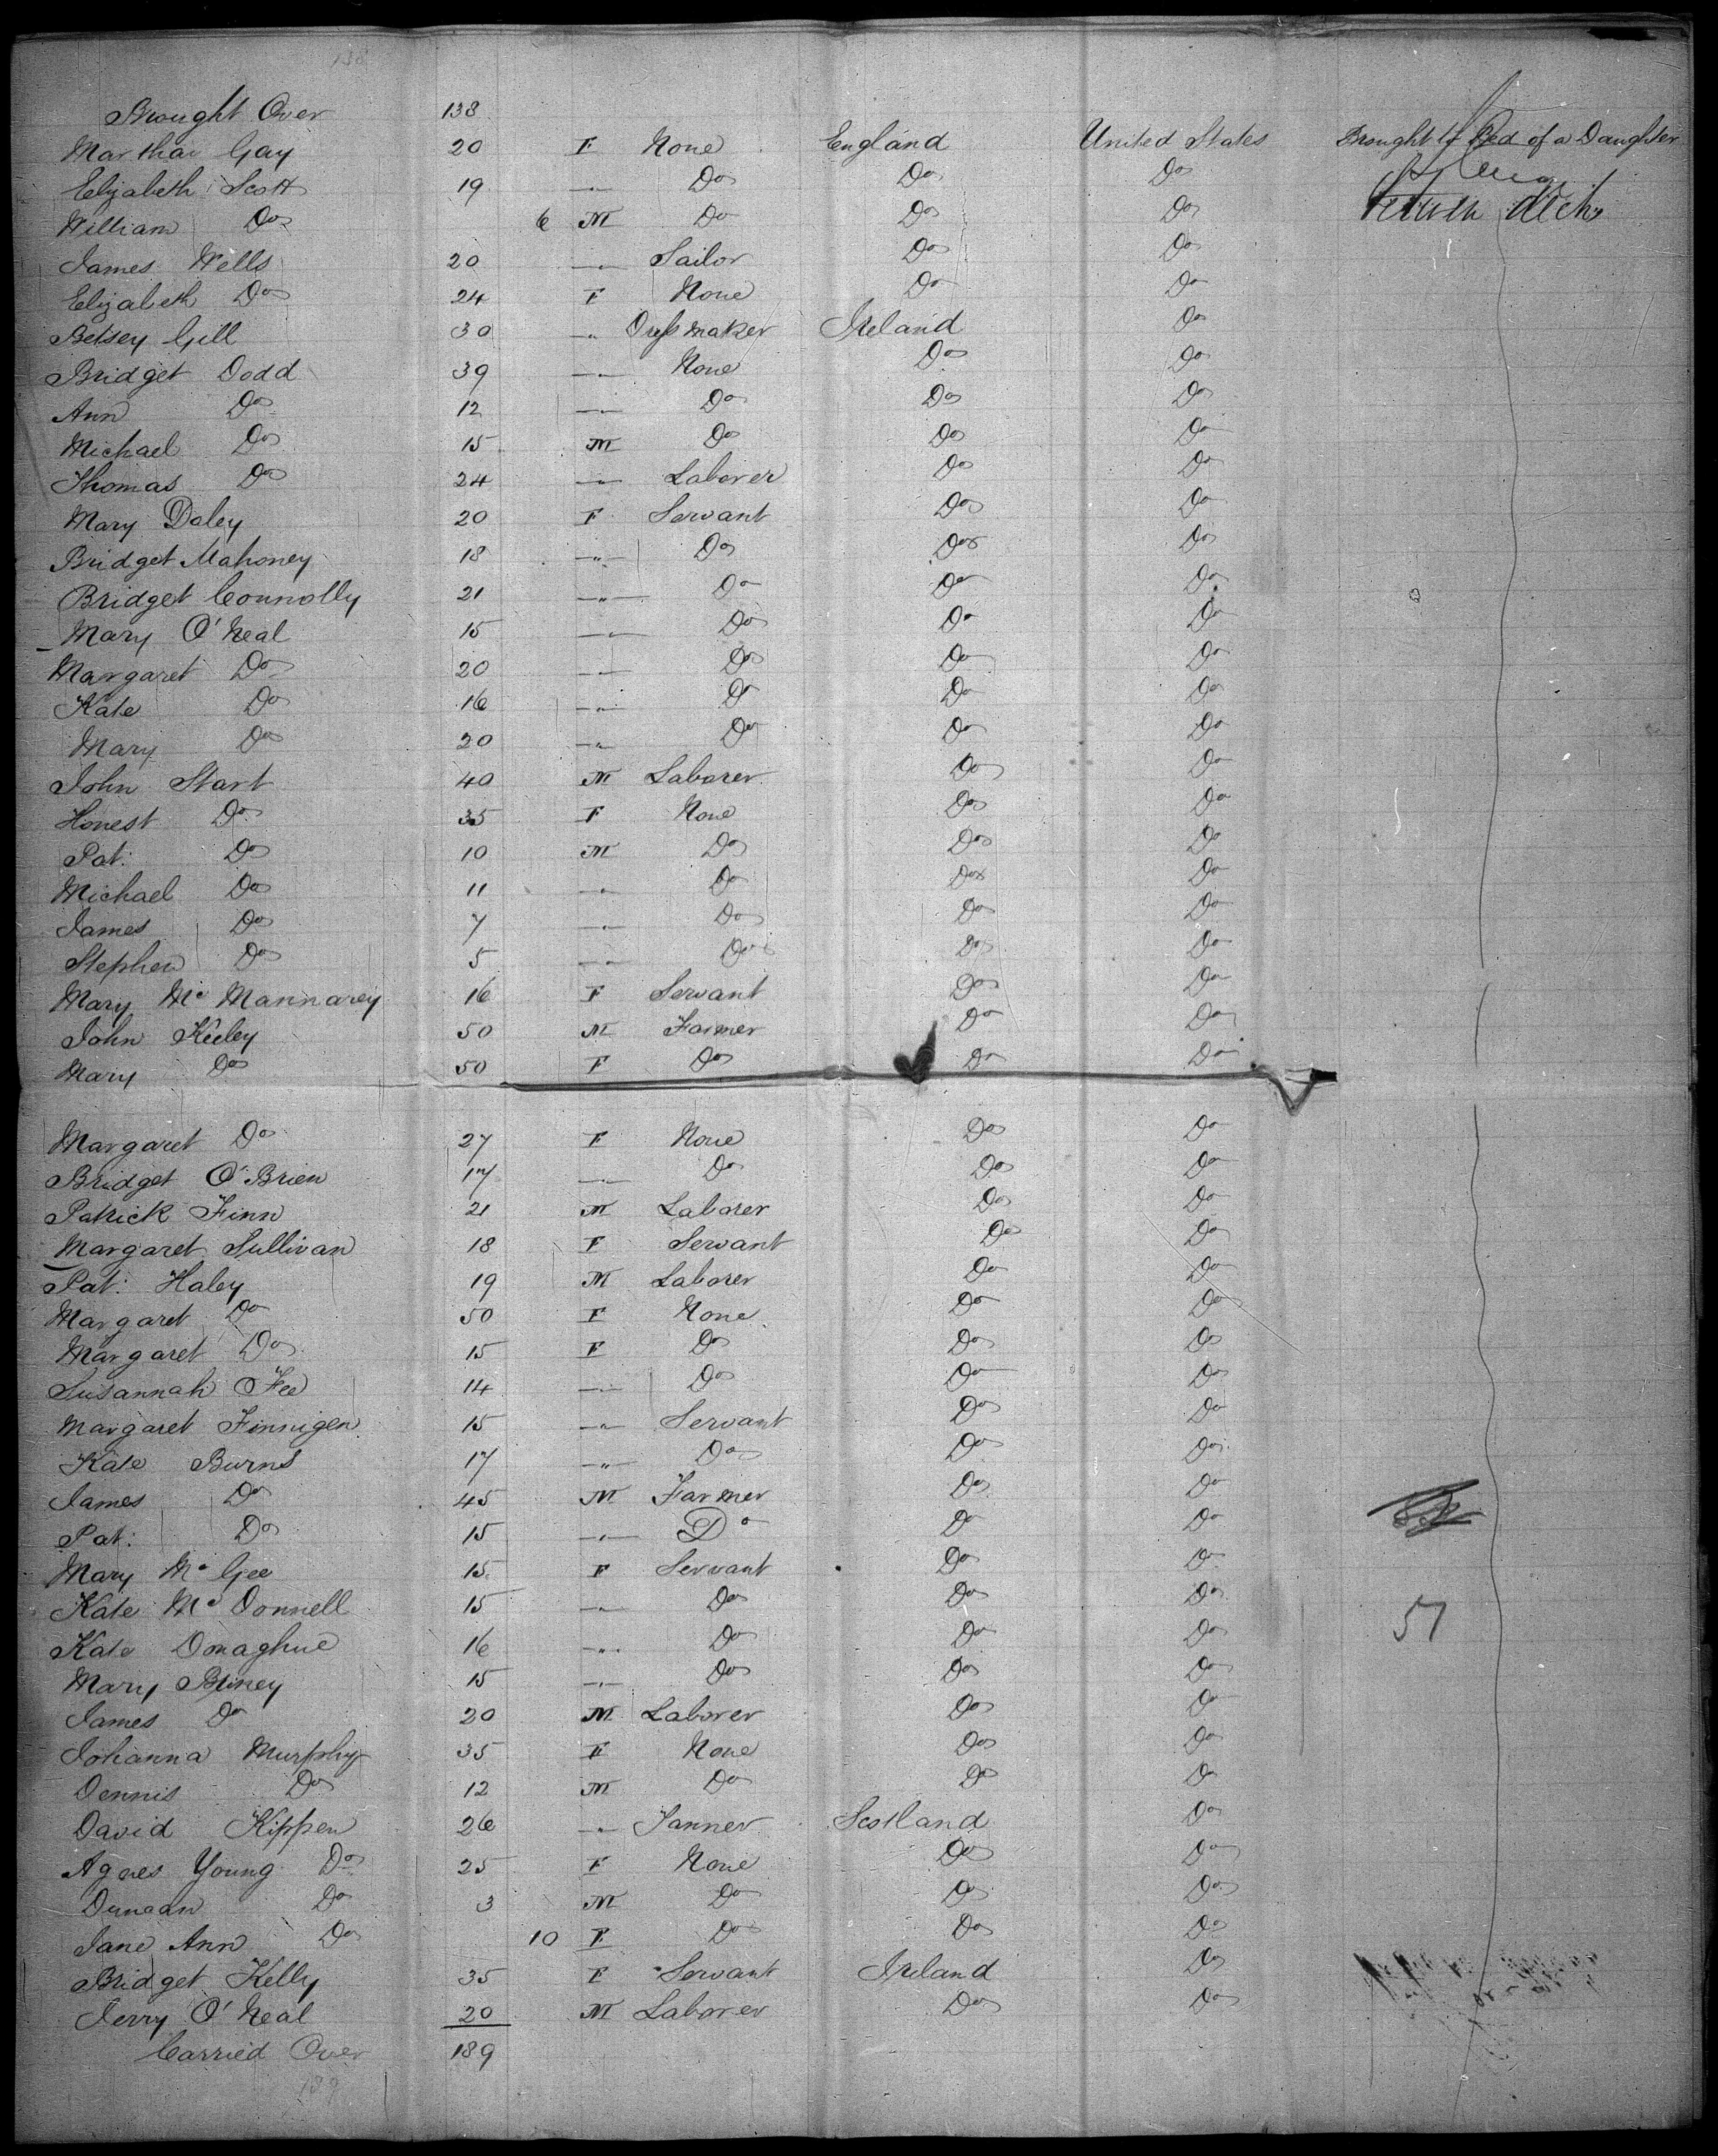 138
Brought Over 138
Martha Gay 20 F None England United States Brought to Bed of a Daughter
Elizabeth Scott 19 " Do Do Do
William Do 6 M Do Do Do Between decks
James Wells 20 " Sailor Do Do
Elizabeth Do 24 F None Do Do
Betsey Gill 30 " Dressmaker Ireland Do
Bridget Dodd 39 " None Do Do
Ann Do 12 " Do Do Do
Michael Do 15 M Do Do Do
Thomas Do 24 " Laborer Do Do
Mary Daley 20 F Servant Do Do
Bridget Mahoney 18 " Do Do Do
Bridget Connolly 21 " Do Do Do
Mary O'Neal 15 " Do Do Do
Margaret Do 20 " Do Do Do
Kate Do 16 " Do Do Do
Mary Do 20 " Do Do Do
John Start 40 M Laborer Do Do
Honest Do 35 F None Do Do
Pat: Do 10 M Do Do Do
Michael Do 11 " Do Do Do
James Do 7 " Do Do Do
Stephen Do 5 " Do Do Do
Mary Mc Mannarey 16 F Servant Do Do
John Keeley 50 M Farmer Do Do
Mary Do 50 F Do Do Do
Margaret Do 27 F None Do Do
Bridget O'Brien 17 " Do Do Do
Patrick Finn 21 M Laborer Do Do
Margaret Sullivan 18 F Servant Do Do
Pat: Haley 19 M Laborer Do Do
Margaret Do 50 F None Do Do
Margaret Do 15 F Do Do Do
Susannah Fee 14 " Do Do Do
Margaret Finnigen 15 " Servant Do Do
Kate Burns 17 " Do Do Do
James Do 45 M Farmer Do Do
Pat: Do 15 " Do Do Do
Mary Mc Gee 15 F Servant Do Do
Kate Mc Donnell 15 " Do Do Do 51
Kate Donaghue 16 " Do Do Do
Mary Briney 15 " Do Do Do
James Do 20 M Laborer Do Do
Johanna Murphy 35 F None Do Do
Dennis Do 12 M Do Do Do
David Kippen 26 " Tanner Scotland Do
Agnes Young Do 25 F None Do Do
Duncan Do 3 M Do Do Do
Jane Ann Do 10 F Do Do Do
Bridget Kelly 35 F Servant Ireland Do
Jerry O'Neal 20 M Laborer Do Do
Carried Over 189
189